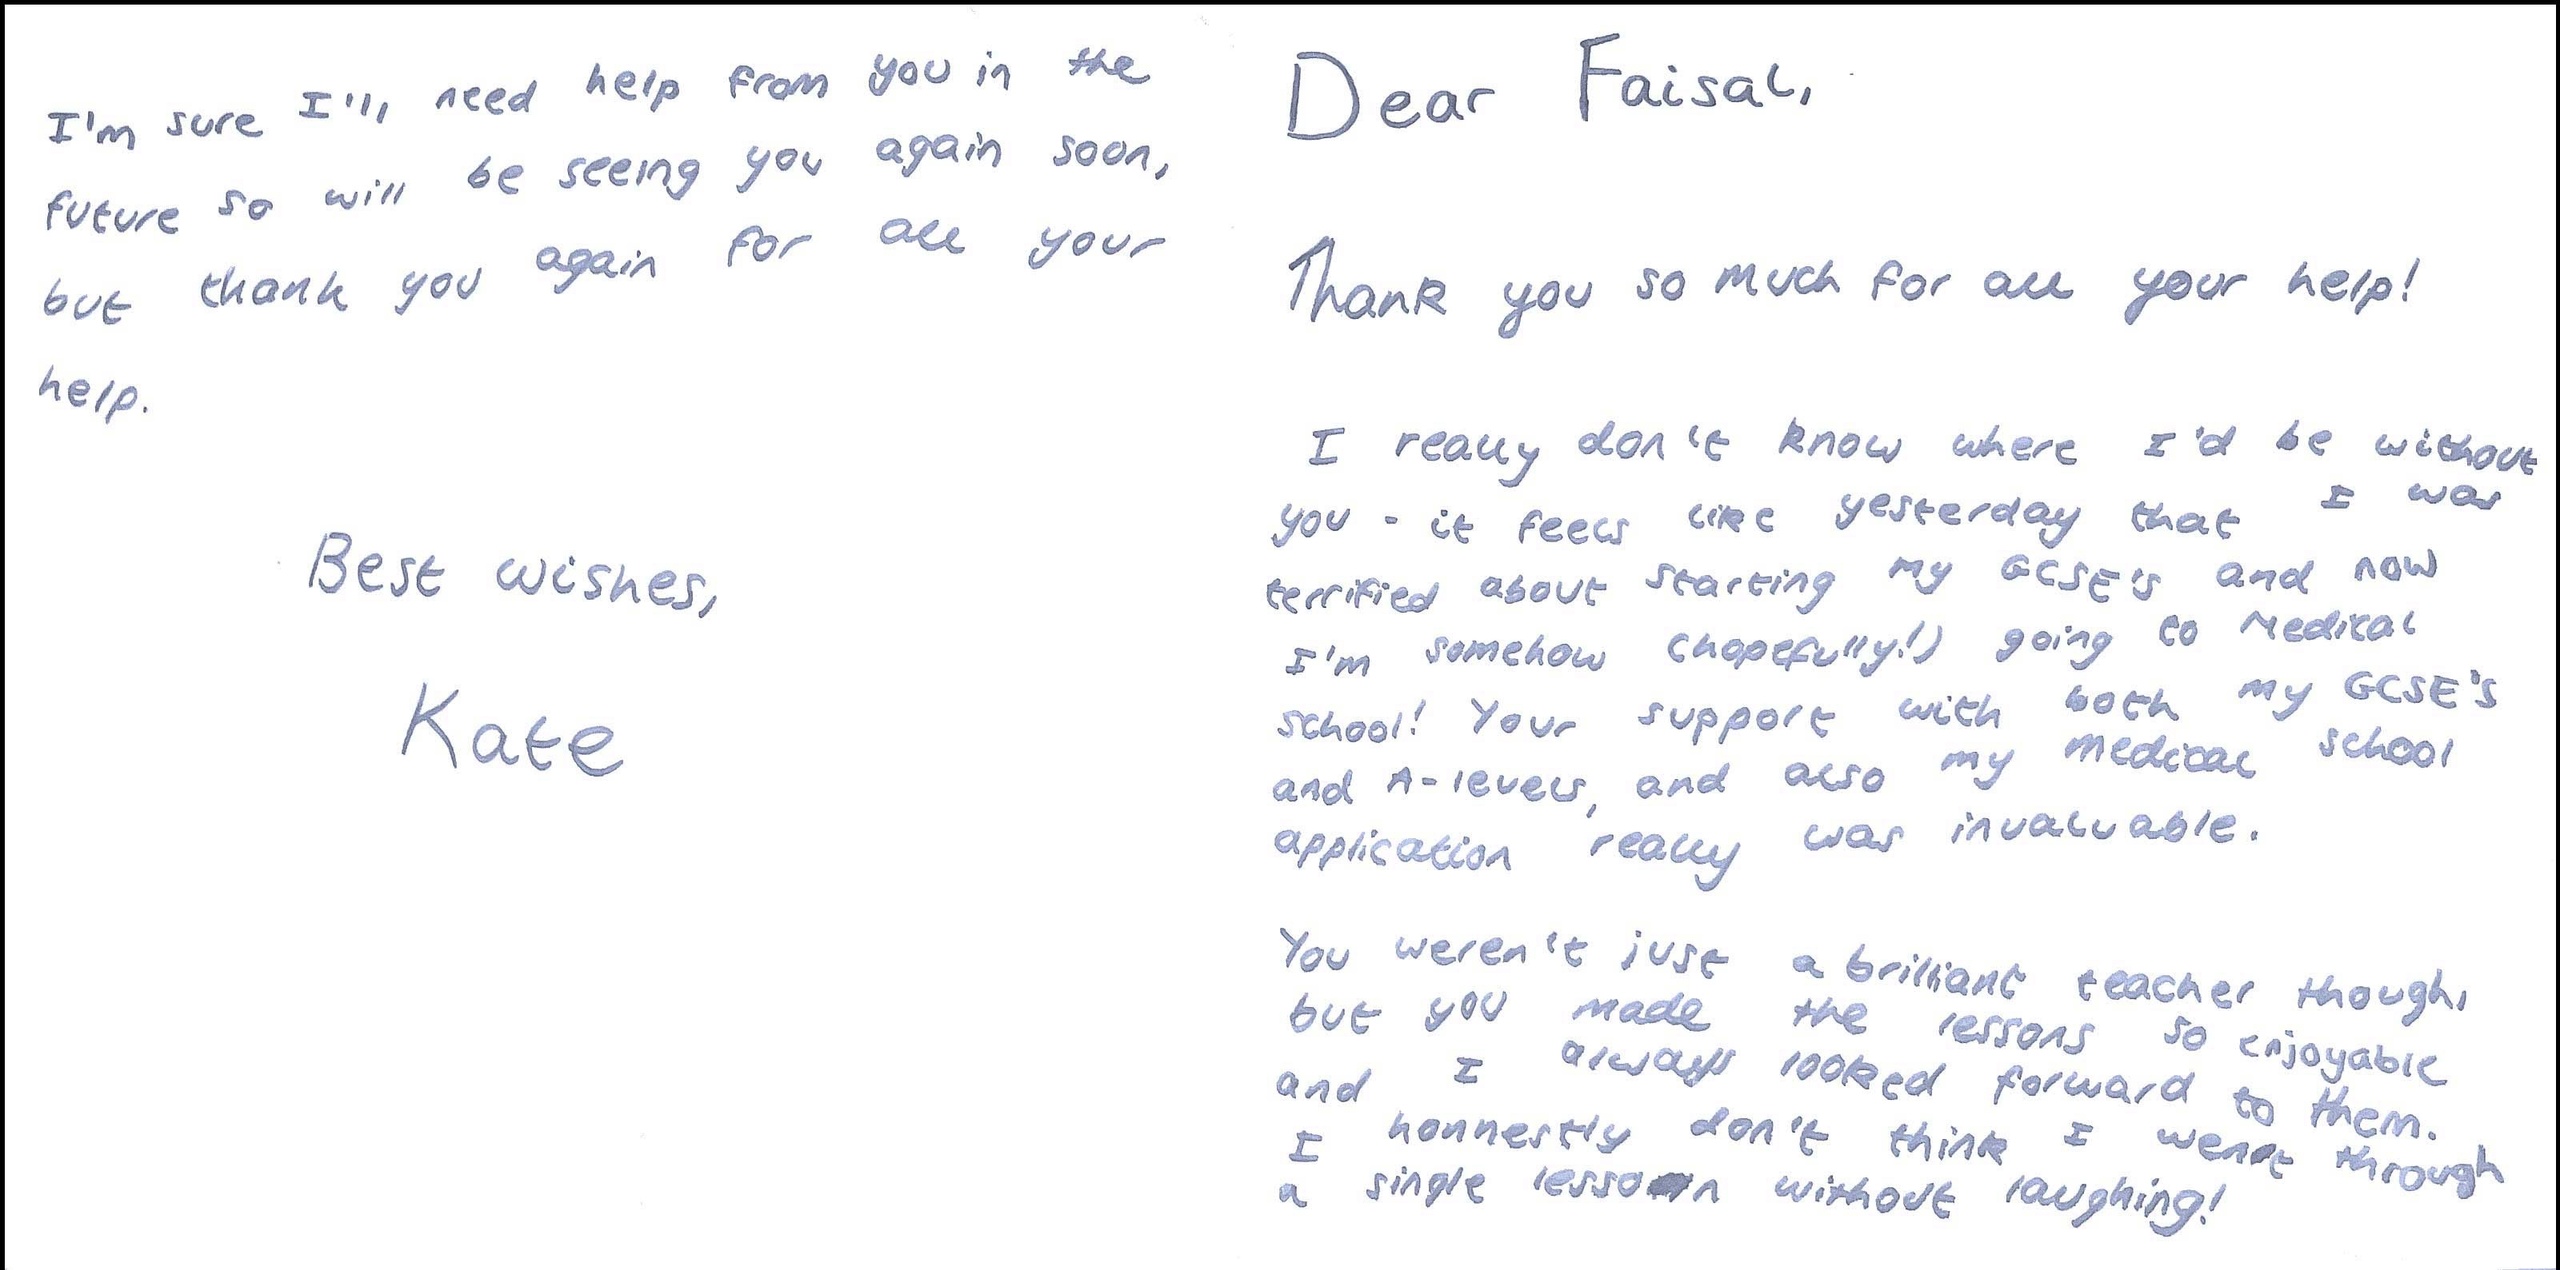 Dear Faisal,
Thank you so much for all your help!
I really don't know where I'd be without
you - it feels like yesterday that I was
terrified about starting my GCSE's and now
I'm somehow (hopefully!) going to Medical
school! Your support with both my GCSE's
and A-levels, and also my medical school
application really was invaluable.
You weren't just a brilliant teacher though,
but you made the lessons so enjoyable
and I always looked forward to them.
I honnestly don't think I went through
a single lesson without laughing!
I'm sure I'll need help from you in the
future so will be seeing you again soon,
but thank you again for all your
help.
Best wishes,
Kate